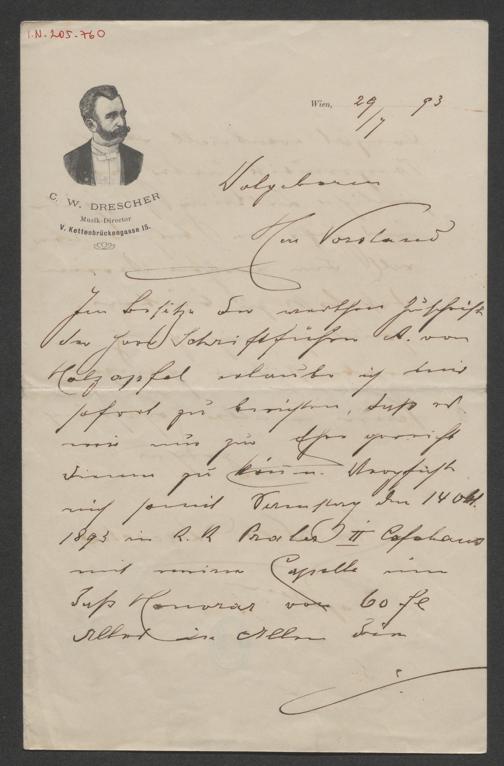 I.N. 205.760
Wien, 29/7 93
C. W. DRESCHER
Musik-Director
V. Kettenbrückengasse 15.
Wolgeboren
Herr Vorstand
Im Besitze der werthen Zuschrift
des Herrn Schriftführer A. von
Holzapfel erlaube ich mir
sofort zu berichten, daß es
mir nur zur Ehre gereicht
dienen zu können. Verpflichte
mich somit Samstag den 14 Okt.
1893 in K. K. Prater II Cafehaus
mit meiner Capelle um
daß Honorar von 60 fl
Alles in Allem